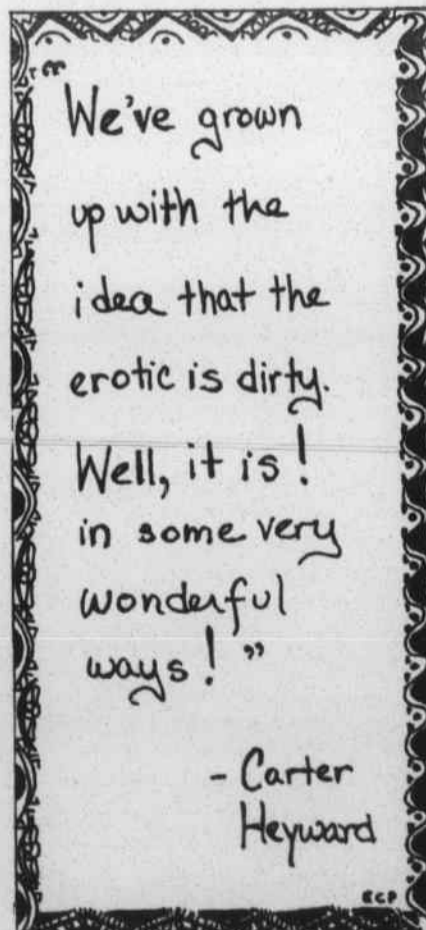 "We've grown
up with the
idea that the
erotic is dirty.
Well, it is!
in some very
wonderful
ways!"
- Carter
Heyward
ECP